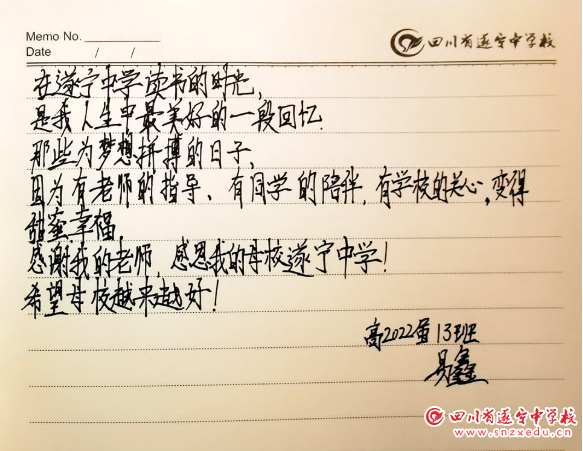 Memo No.
四川省遂宁中学校
Date / /
在遂宁中学读书的时光，
是我人生中最美好的一段回忆.
那些为梦想拼搏的日子，
因为有老师的指导、有同学的陪伴，有学校的关心，变得
甜蜜幸福，
感谢我的老师，感恩我的母校遂宁中学！
希望母校越来越好！
高2022届13班
易鑫
四川省遂宁中学校
www.snzxedu.cn